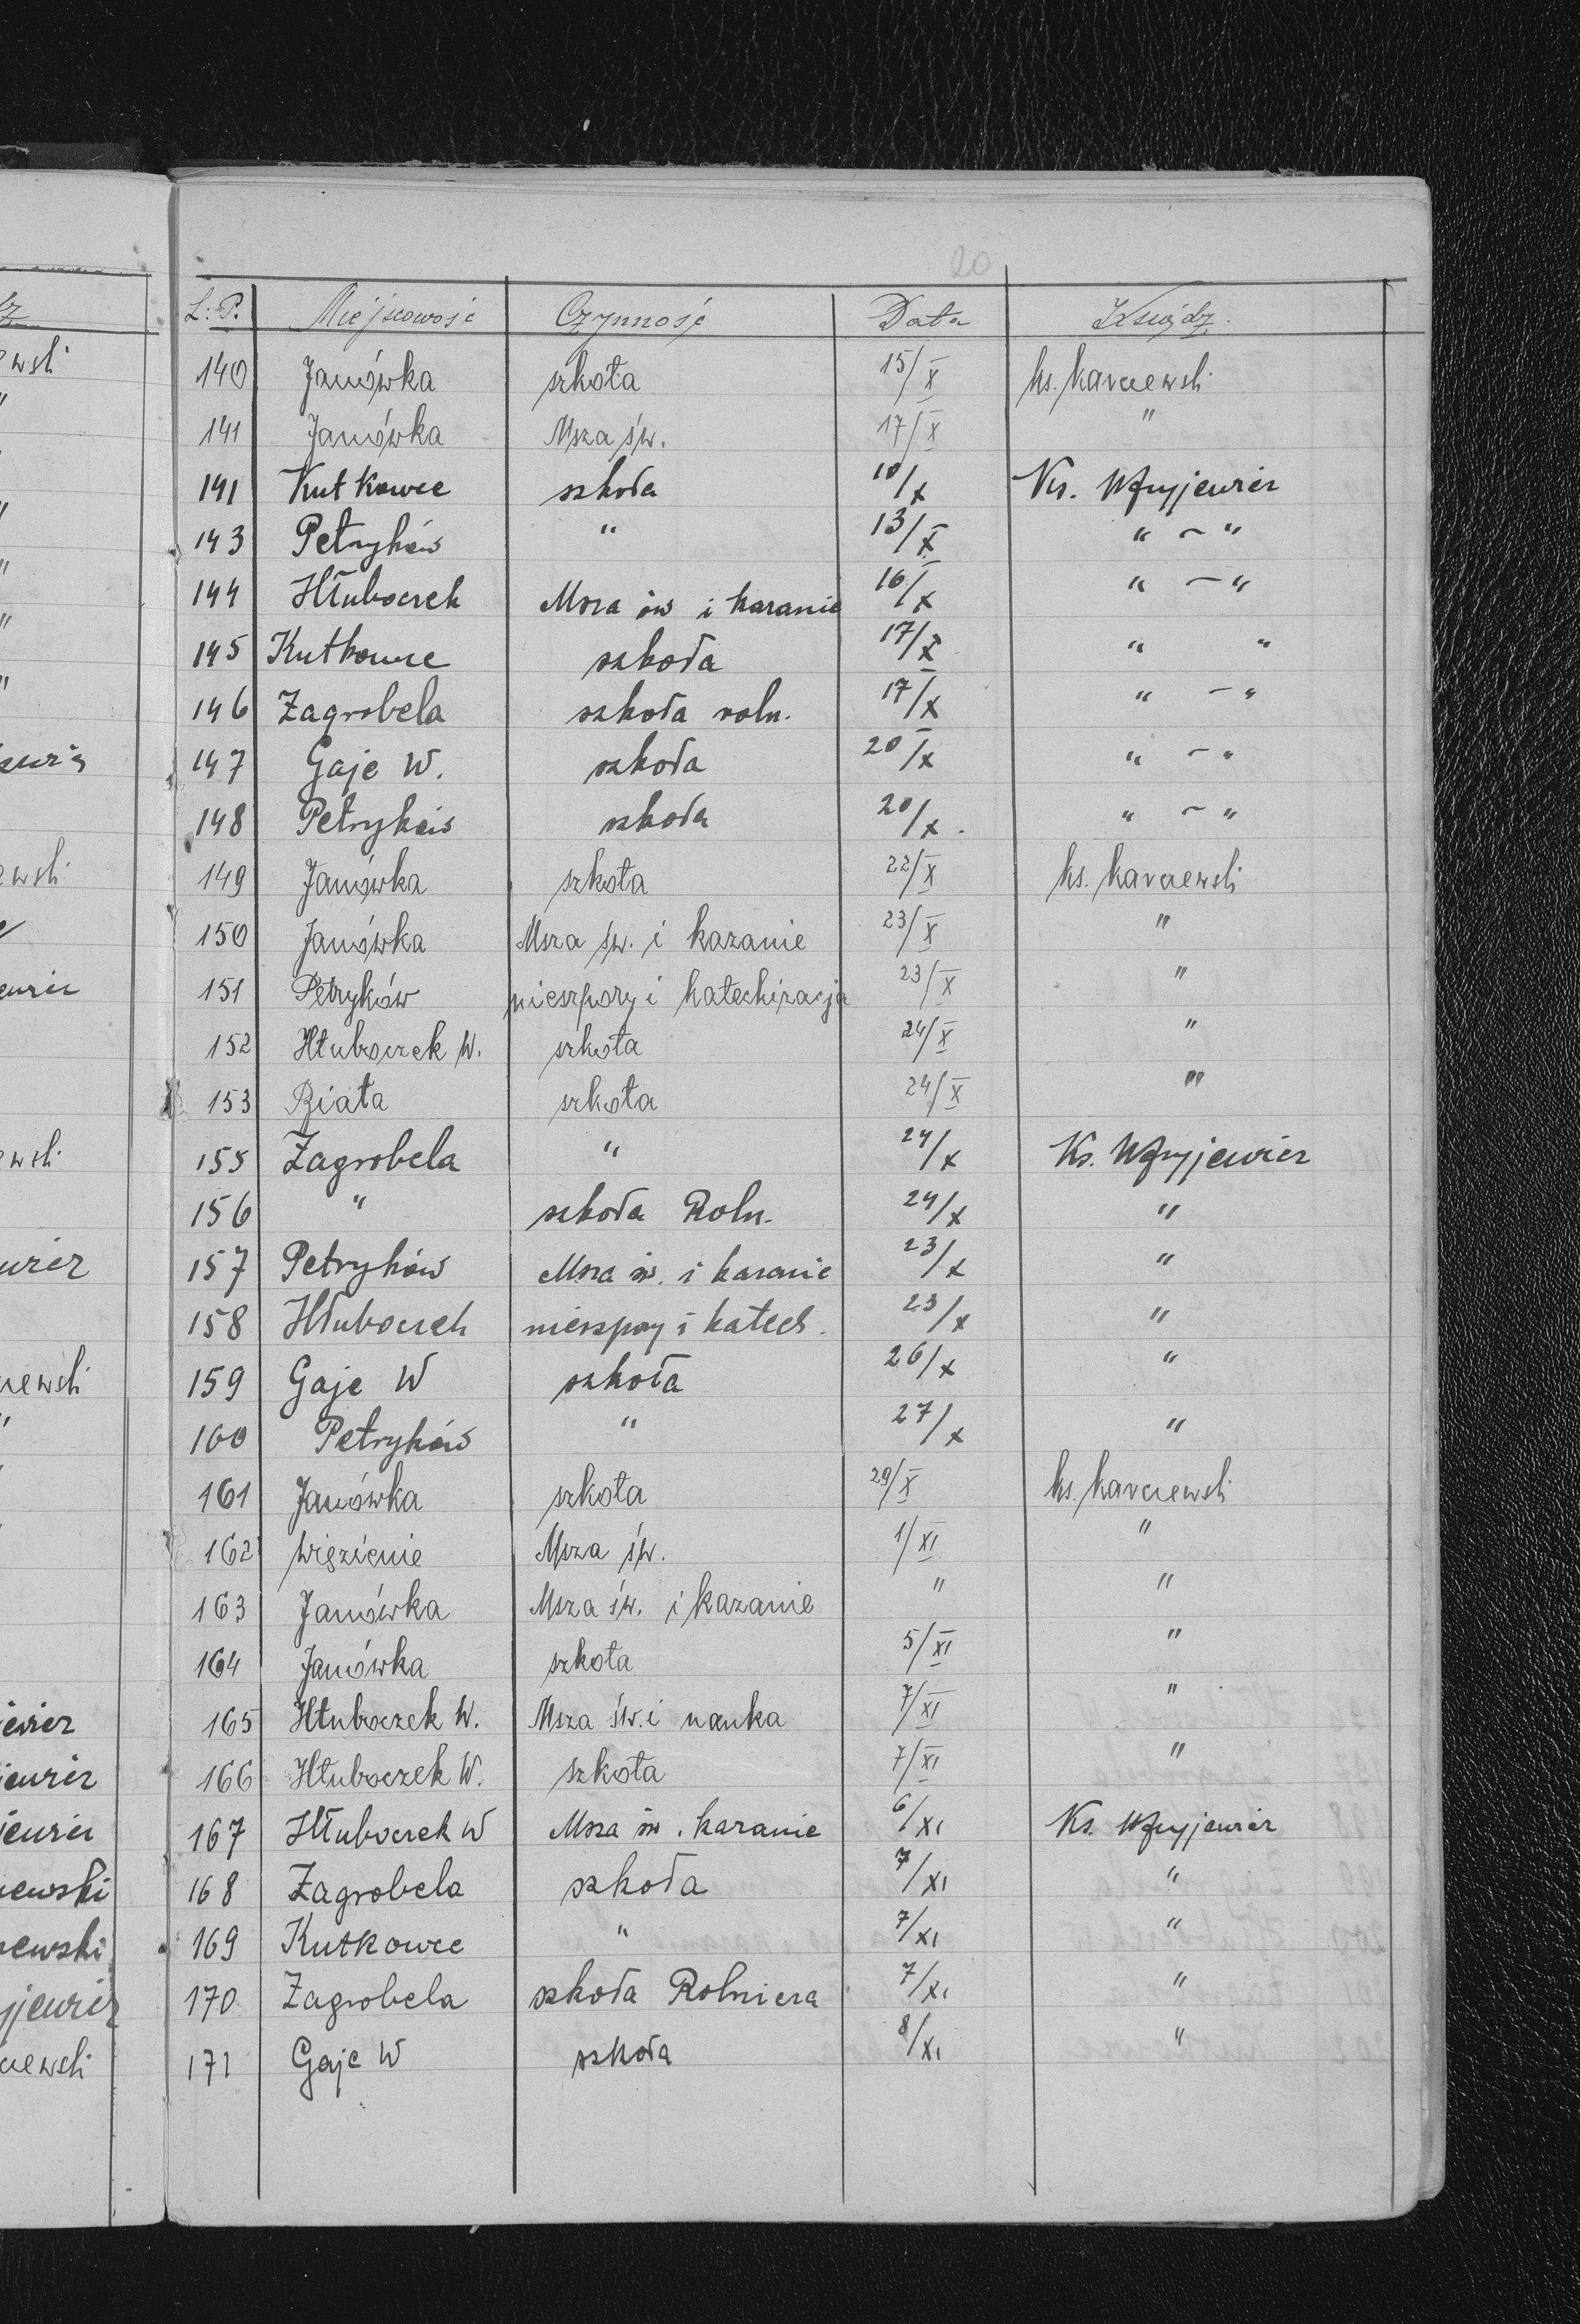 20
L. P. Miejscowość Czynność Data Ksiądz
140 Janówka szkoła 15/X ks. Karczewski
141 Janówka Msza św. 17/X "
141 Kutkowce szkoła 10/X Ks.
143 Petryków " 13/X " – "
144 Hłuboczek Msza św i kazanie 16/X " – "
145 Kutkowce szkoła 17/X " "
146 Zagrobela szkoła roln. 17/X " – "
147 Gaje W. szkoła 20/X " – "
148 Petryków szkoła 20/X. " – "
149 Janówka szkoła 22/X ks. Karczewski
150 Janówka Msza św. i kazanie 23/X "
151 Petryków nieszpory i katechizacja 23/X "
152 Hłuboczek W. szkoła 24/X "
153 Biała szkoła 24/X "
155 Zagrobela " 24/X Ks.
156 " szkoła Roln. 24/X "
157 Petryków Msza św. i kazanie 23/X "
158 Hłuboczek nieszpory i katech. 23/X "
159 Gaje W szkoła 26/X "
160 Petryków " 27/X "
161 Janówka szkoła 29/X ks. Karczewski
162 więzienie Msza św. 1/XI "
163 Janówka Msza św. i kazanie " "
164 Janówka szkoła 5/XI "
165 Hłuboczek W. Msza św. i nauka 7/XI "
166 Hłuboczek W. szkoła 7/XI "
167 Hłuboczek W Msza św. kazanie 6/XI Ks.
168 Zagrobela szkoła 7/XI "
169 Kutkowce " 7/XI "
170 Zagrobela szkoła Rolnicza 7/XI "
171 Gaje W szkoła 8/XI "